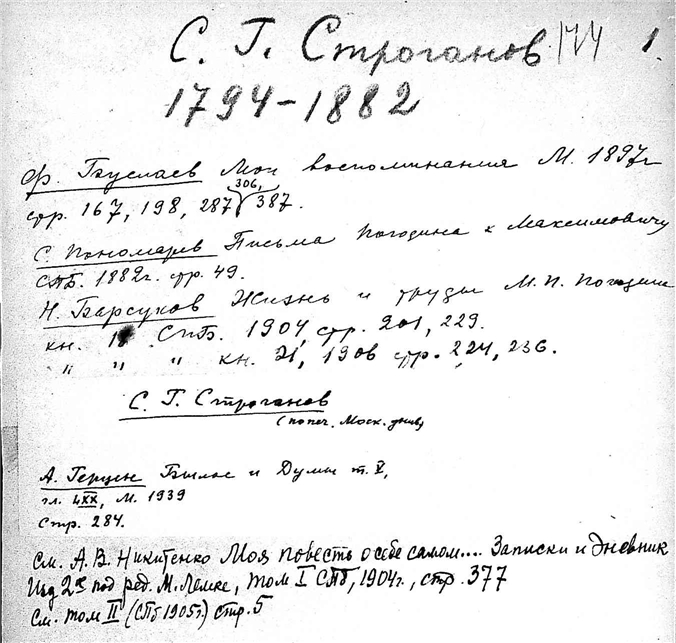 С. Г. Строганов 174 1.
1794-1882
Ф. Буслаев Мои воспоминания М. 1897г
стр. 167, 198, 287 306, 387.
С. Пономарев Письма Погодина к Максимовичу
СПБ. 1882г. стр. 49.
Н. Барсуков Жизнь и труды М. П. Погодина
кн. СПБ. 1904, стр. 201, 229.
" " " кн. 21, 1906 стр. 224, 236.
С. Г. Строганов
(попеч. Моск. унив)
А. Герцен Былое и Думы т.
гл. М. 1939
Стр. 284.
См. А. В. Никитенко Моя повесть о себе самом.... Записки и дневник
Изд 2ое под ред. М. Лемке, том I СПб, 1904г., стр. 377
См. том II (СПб 1905г.) стр. 5